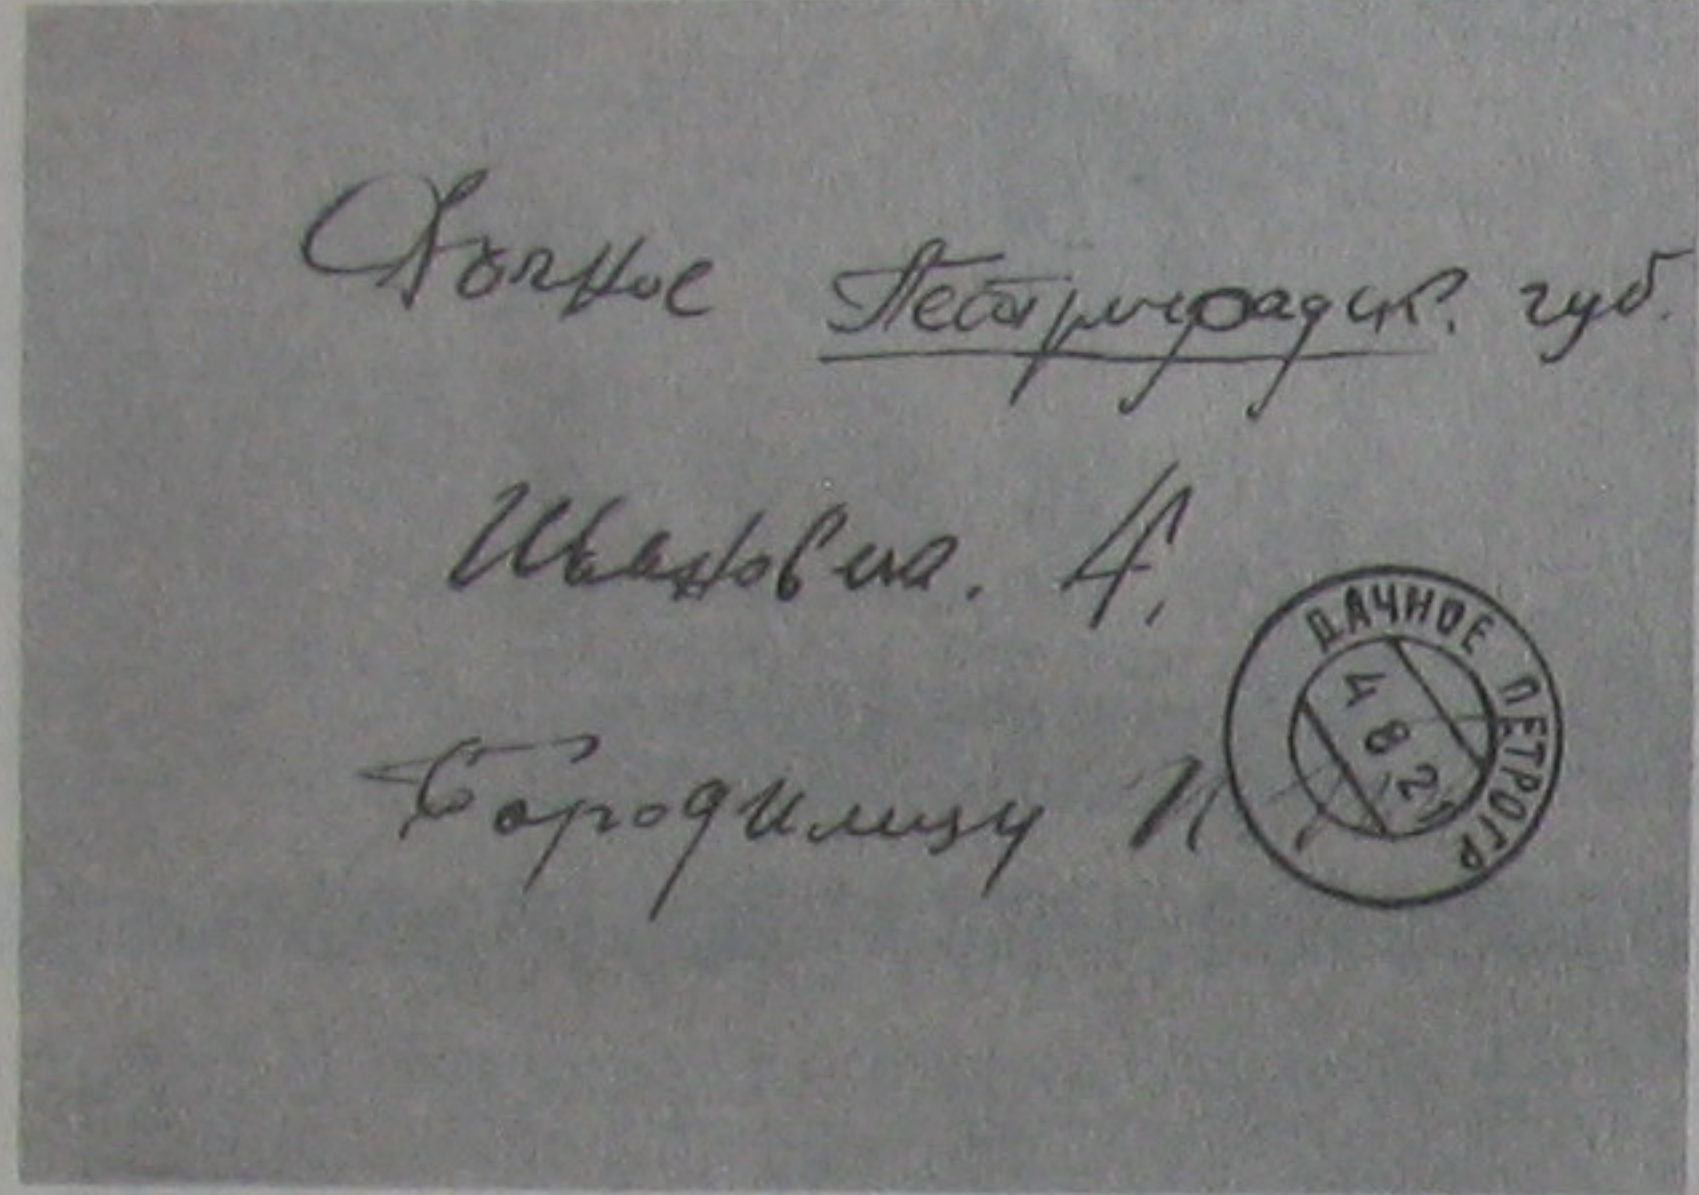 Дачное Петроградск. губ.
Ивановка. 4,
Бородилицу И
ДАЧНОЕ ПЕТРОГР
4 8 2